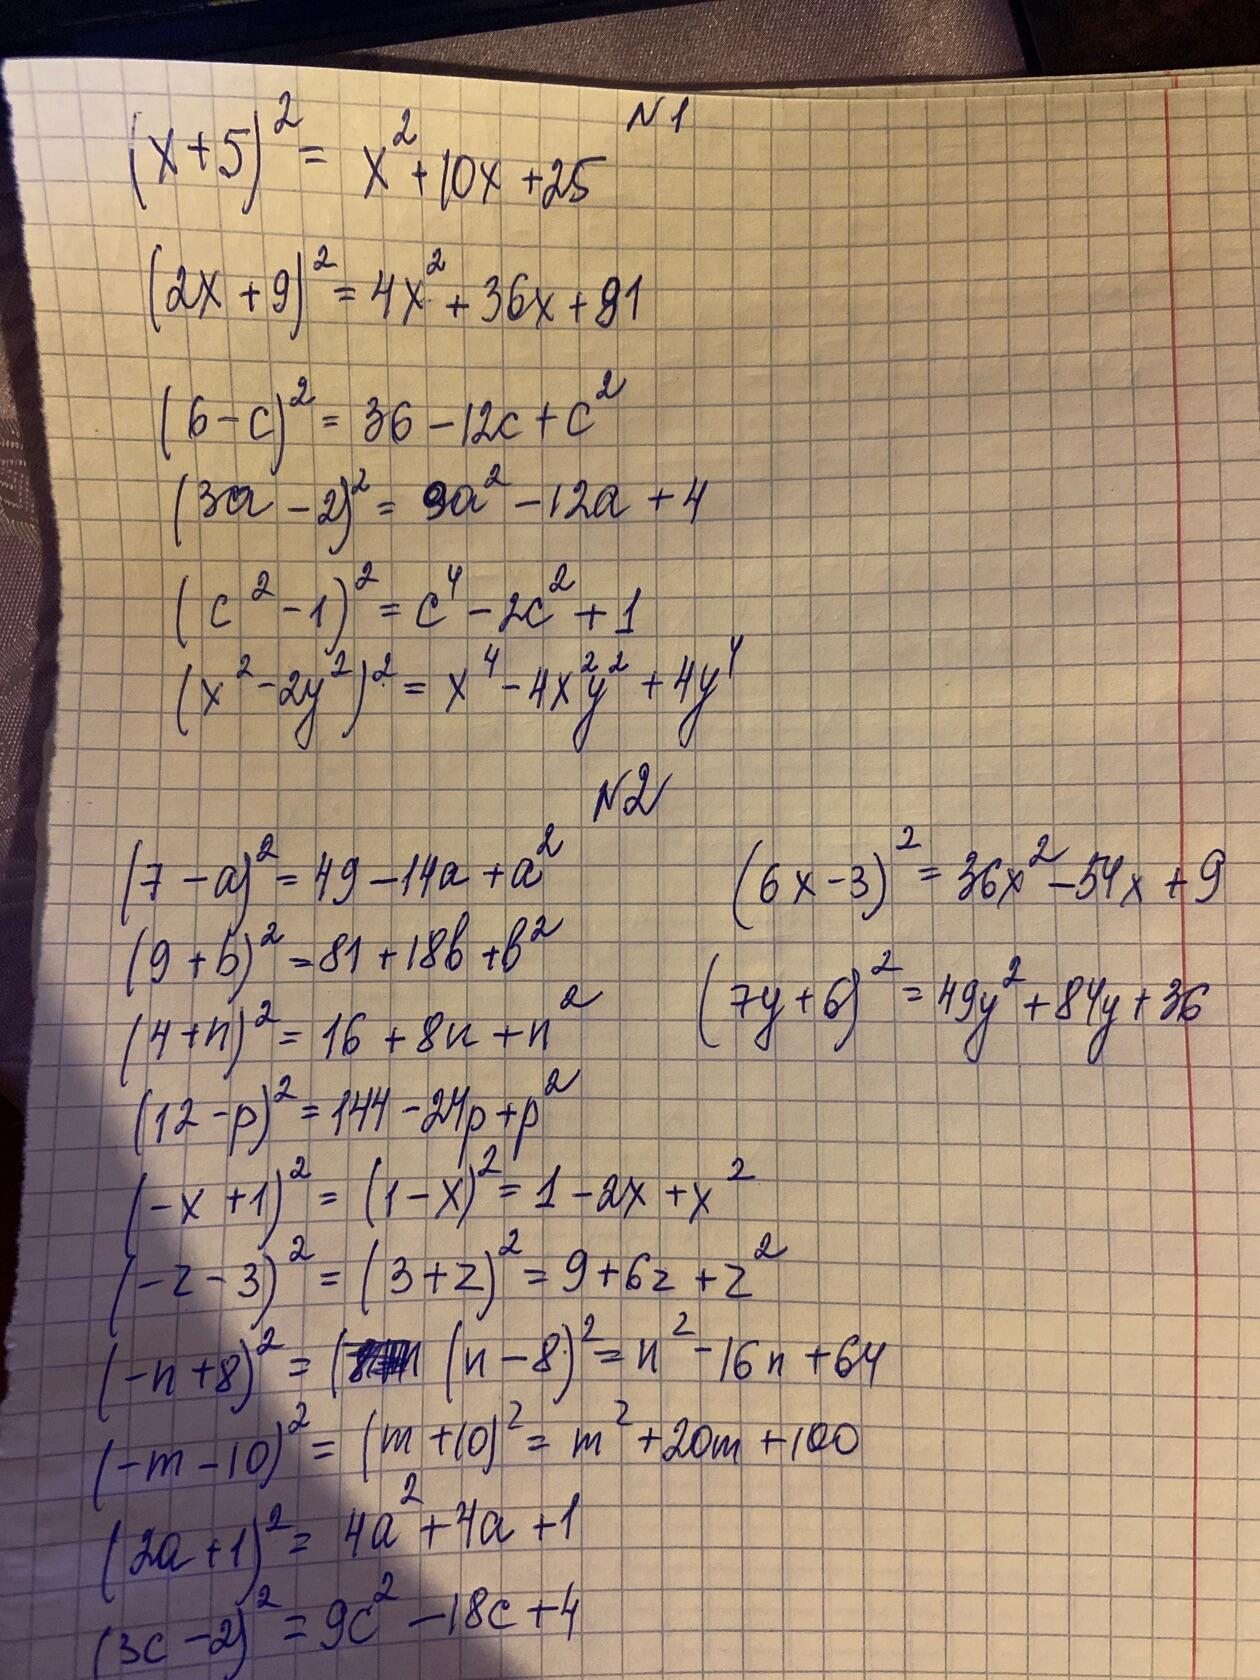 N1
(x+5)² = x²+10x+25
(2x+9)² = 4x²+36x+91
(6-c)² = 36-12c+c²
(3a-2)² = 9a²-12a+4
(c²-1)² = c⁴-2c²+1
(x²-2y²)² = x⁴-4x²y²+4y⁴
N2
(7-a)² = 49-14a+a²
(9+b)² = 81+18b+b²
(4+n)² = 16+8n+n²
(12-p)² = 144-24p+p²
(-x+1)² = (1-x)² = 1-2x+x²
(-z-3)² = (3+z)² = 9+6z+z²
(-n+8)² = ( (n-8)² = n²-16n+64
(-m-10)² = (m+10)² = m²+20m+100
(2a+1)² = 4a²+4a+1
(3c-2)² = 9c²-18c+4
(6x-3)² = 36x²-54x+9
(7y+6)² = 49y²+84y+36